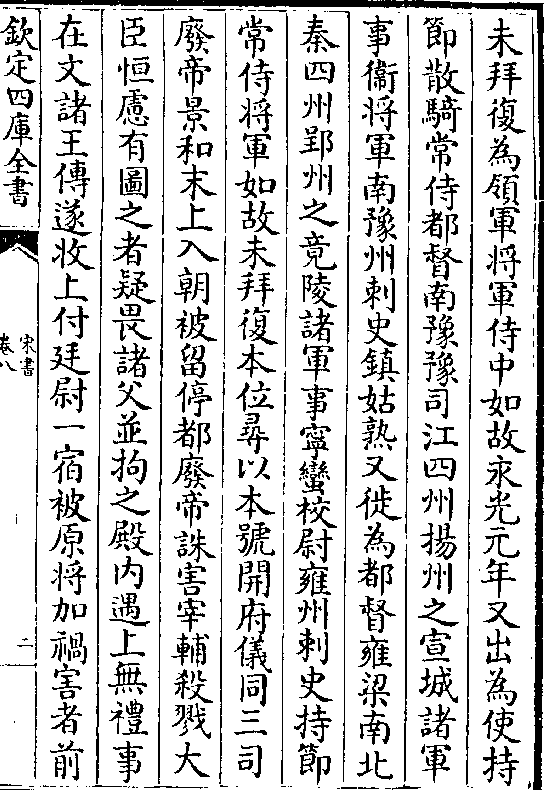 未拜復為領軍将軍侍中如故永光元年又出為使持
節散騎常侍都督南豫豫司江四州揚州之宣城諸軍
事衞将軍南豫州刺史鎮姑熟又徙為都督雍梁南北
秦四州郢州之竟陵諸軍事寧蠻校尉雍州刺史持節
常侍将軍如故未拜復本位尋以本號開府儀同三司
廢帝景和末上入朝被留停都廢帝誅害宰輔殺戮大
臣恒慮有圖之者疑畏諸父並拘之殿内遇上無禮事
在文諸王傳遂收上付廷尉一宿被原将加禍害者前
欽定四庫全書
宋書
卷八
二